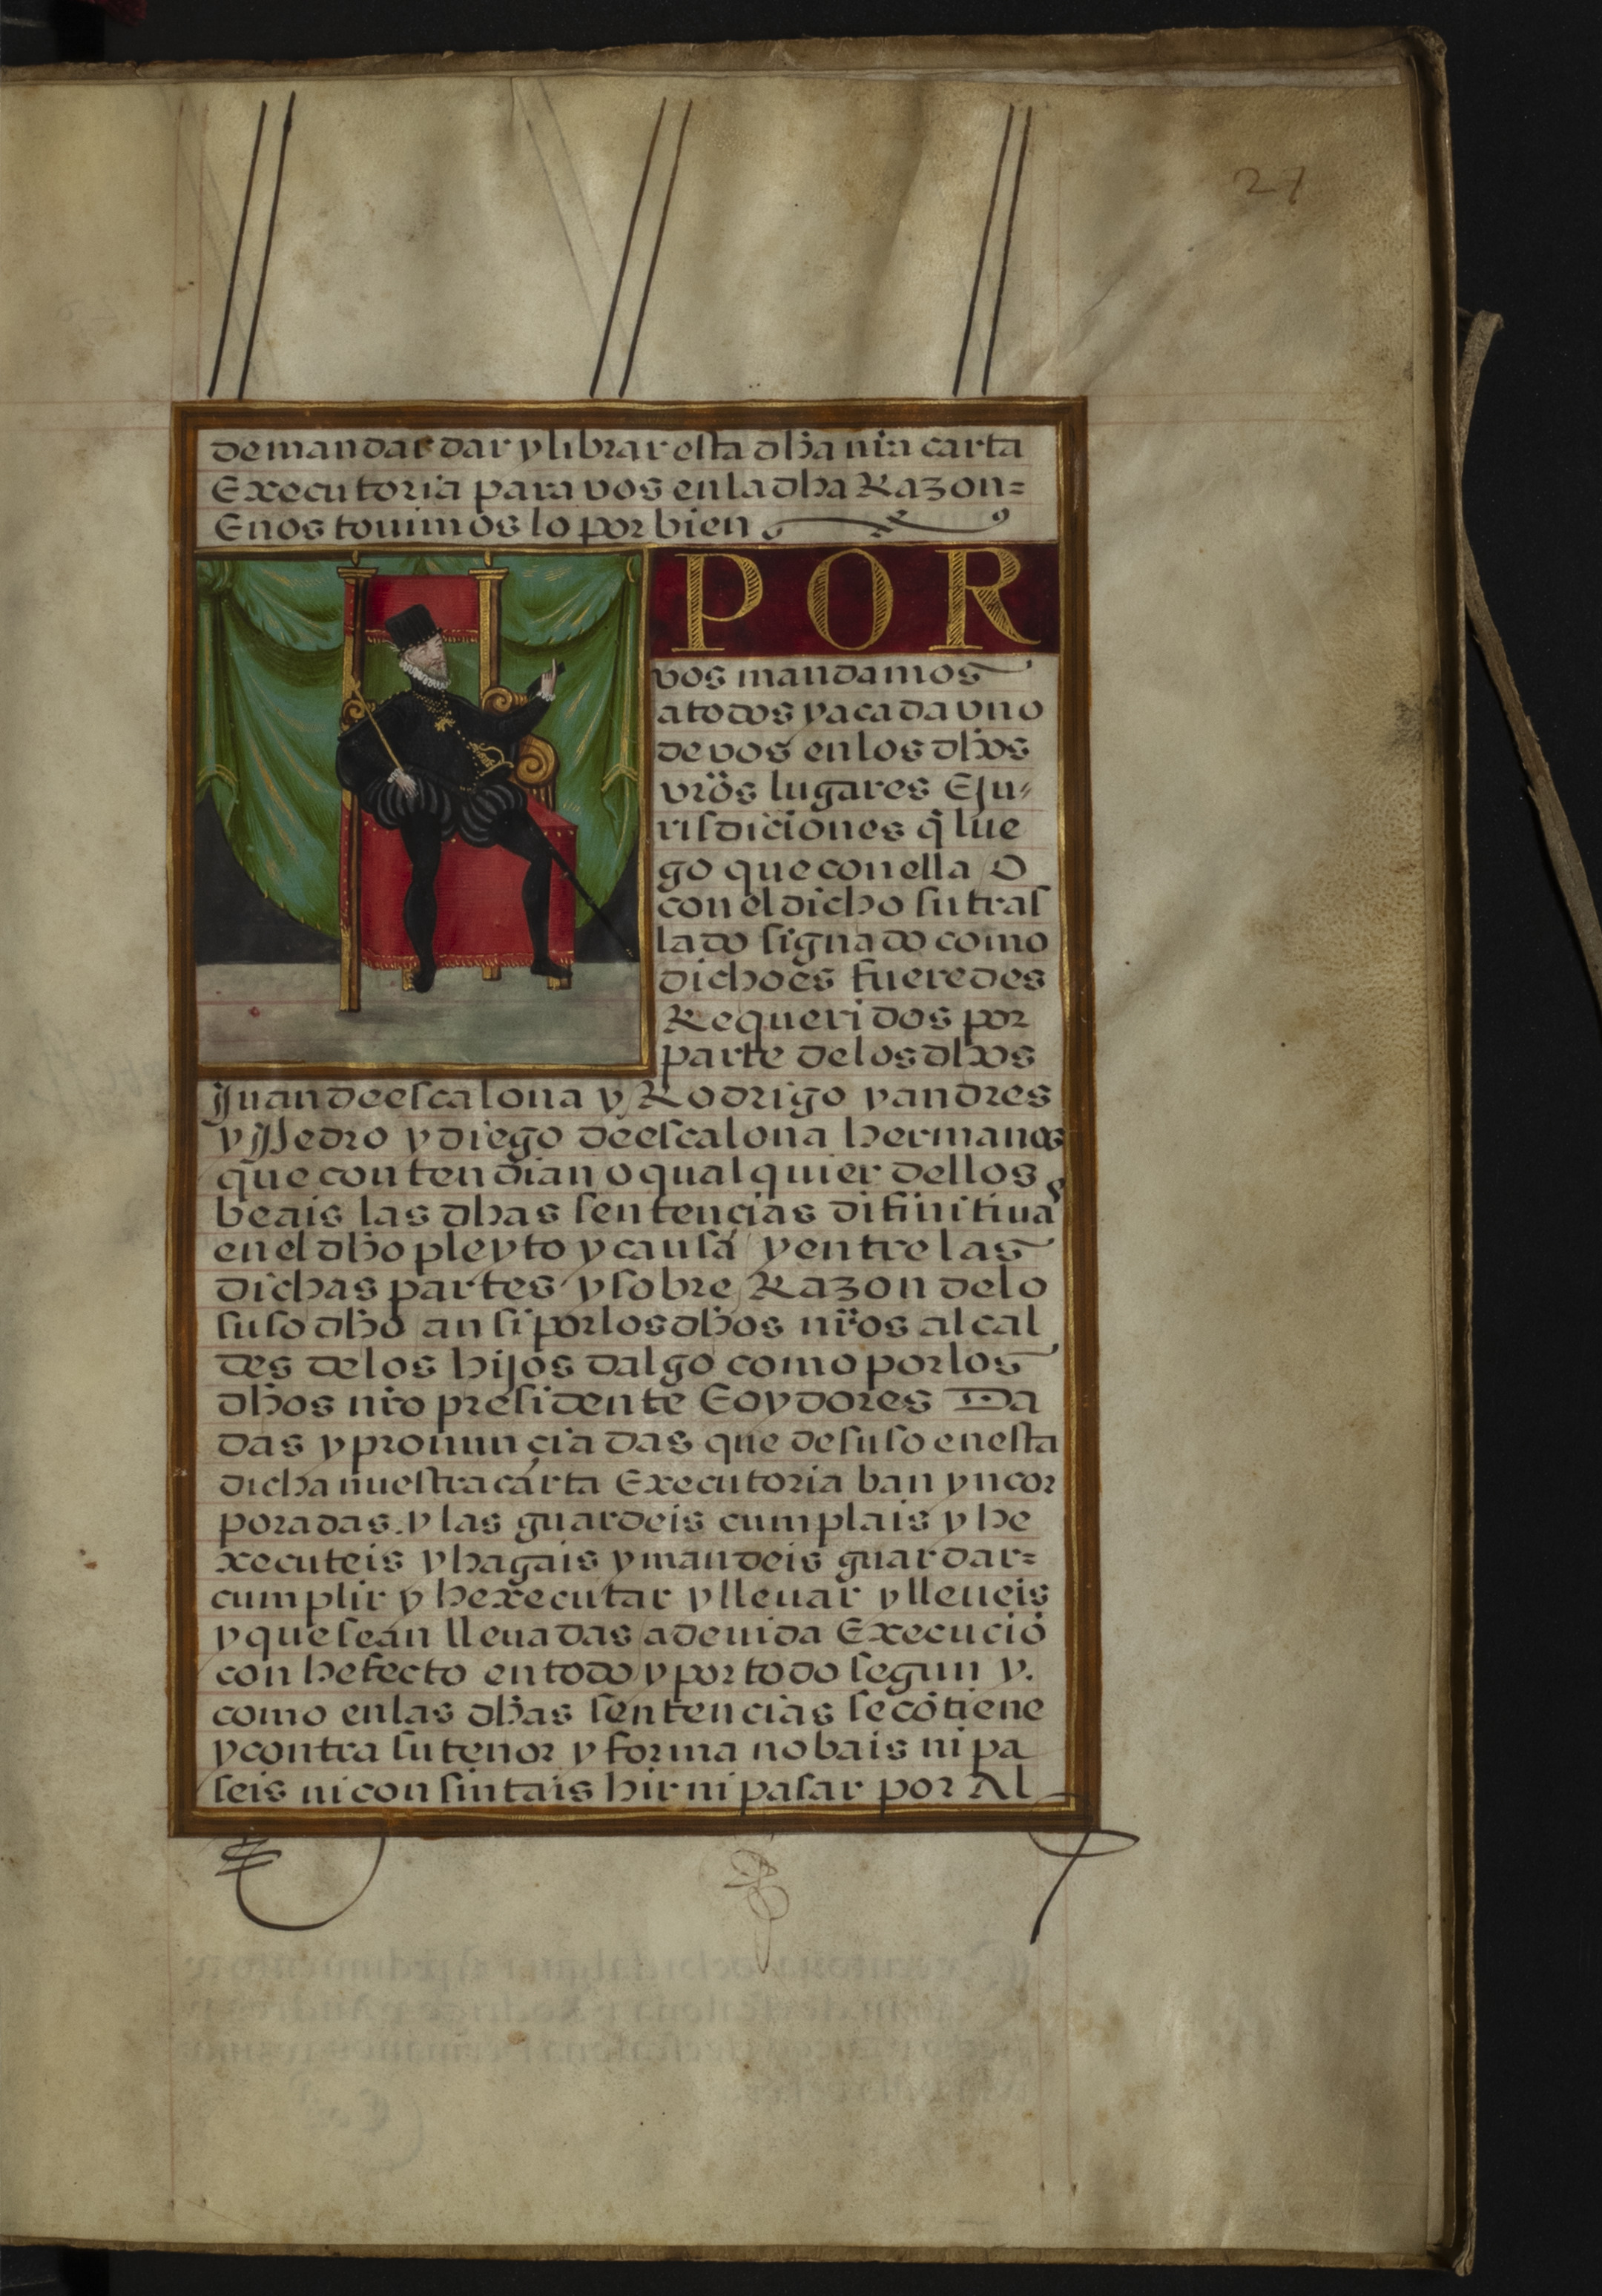 27
demandar dar y librar esta dha nr̃a carta
Executoria para vos en la dha Razon=
E nos touimos lo por bien
POR
vos mandamos
a todos y a cada vno
de vos en los dhos
vr̃os lugares E Ju-
risdiciones q̃ lue
go que con ella O
con el dicho su tras
lado signado como
dicho es fueredes
Requeridos por
parte de los dhos
Juan de escalona y Rodrigo y andres
y Pedro y diego de escalona hermanos
que contendian o qual quier dellos
beais las dhas sentencias difinitiuas
en el dho pleyto y causa y entre las
dichas partes y sobre Razon de lo
suso dho an si por los dhos nr̃os alcal
des de los hijos dalgo como por los
dhos nr̃o presidente E oydores Da
das y pronunciadas que de suso en esta
dicha nuestra carta Executoria ban yncor
poradas. y las guardeis cumplais y he
xecuteis y hagais y mandeis guardar=
cumplir y hexecutar y lleuar y lleueis
y que sean lleuadas a deuida Execució
con hefecto en todo y por todo segun y.
como en las dhas sentencias se cõtiene
y contra su tenor y forma no bais ni pa
seis ni consintais hir ni pasar por Al